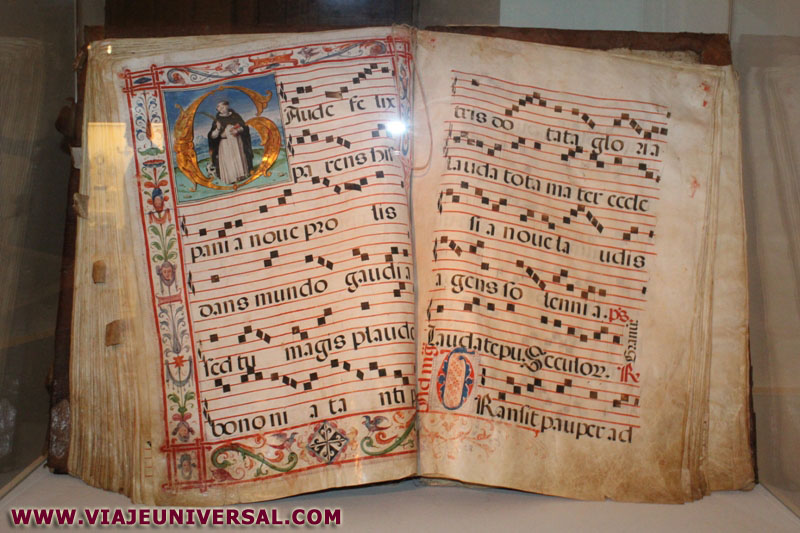 Gaude fe lix
pa rens his
pania noue pro lis
dans mundo gaudia
sed tu magis plaude
bononi a ta nti p
tris do tata glo ria
lauda tota mater eccle
si a noue la udis
agens so lennia. ps.
Laudate pu. Seculor.
Transit pauper ad
WWW.VIAJEUNIVERSAL.COM